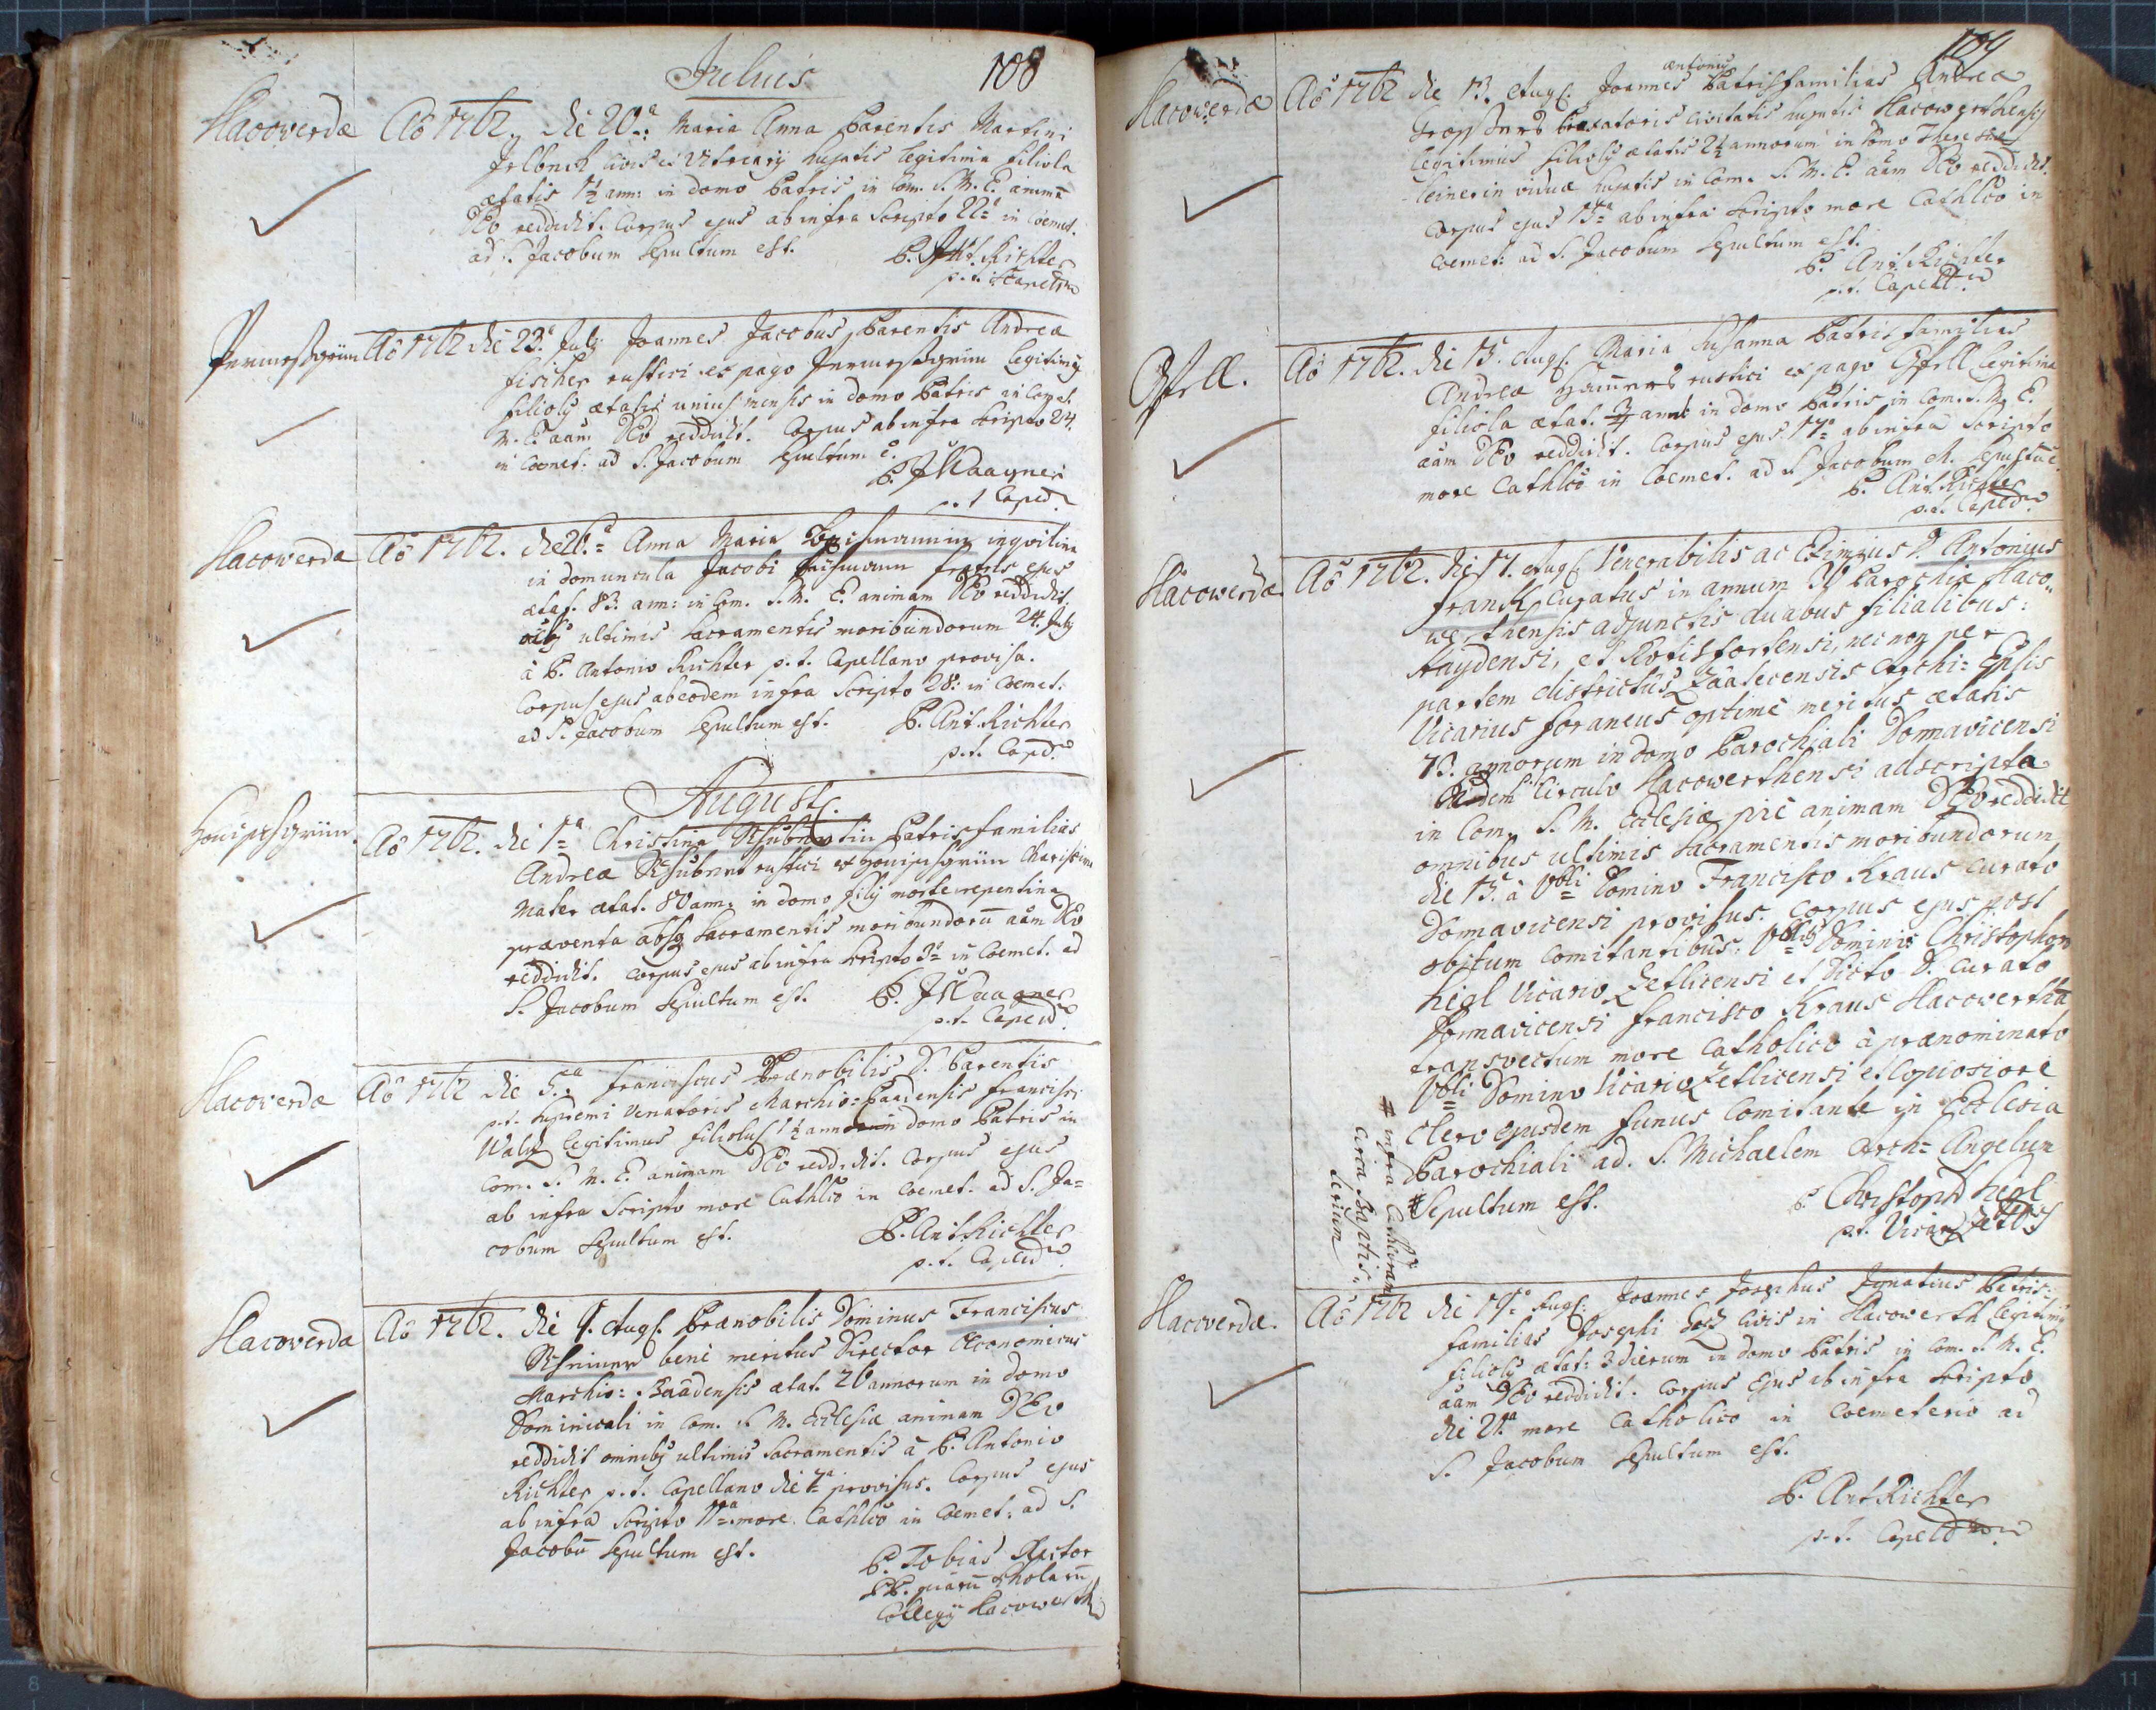 Julius
108
Slacowerdæ
Aō 1762. die 20.ª Maria Anna Parentis Martini
civis et Vitreary hujatis legitima filiola
ætatis 1½ ann: in domo Patris in Com. S. M. E. animā
DEo reddidit. Corpus ejus ab infra Scripto 22ª in Coemet.
ad S. Jacobum Sepultum est.
P. Ant. Richter
p. t. Capell
Permesgrün
Aō 1762 die 23.ª July Joannes Jacobus, Parentis Andreæ
Fischer rustici ex pago Permesgrün legitimus
filiolus ætatis unius mensis in domo Patris in Com. S.
M. E. aām DEo reddidit. Corpus ab infra Scripto 24.
in Coemet. ad S. Jacobum Sepultum e.
P. J Waagner
p. t. Capel
Slacowerda
Aō 1762. die 26.ª Anna Maria inqvilina
in domuncula Jacobi fratris ejus
ætat. 83. ann: in Com. S. M. E. animam DEo reddidit
ultimis Sacramentis moribundorum 24. July
à P. Antonio Richter p. t. Capellano provisa.
Corpus ejus ab eodem infra Scripto 28: in Coemet:
ad S. Jacobum Sepultum est.
P. Ant. Richter
p. t. Capel
August.
Honipsgrün
Aō 1762. die 1ª Christina Patrisfamilias
Andreæ rustici ex Honipsgrün Charissima
Mater ætat. 80 ann: in domo filij morte repentina
præventa absq Sacramentis moribundorū aām DEo
reddidit. Corpus ejus ab infra Scripto 3ª in Coemet. ad
S. Jacobum Sepultum est.
P. J Waagner
p. t. Capel
Slacowerdæ
Aō 1762 die 5.ª Franciscus Prænobilis D. Parentis
p. t. Supremi Venatoris Marchio: Baadensis Francisci
Waltz legitimus filiolus ½ annorum in domo Patris in
Com. S. M. E. animam DEo reddidit. Corpus ejus
ab infra Scripto more Cathlco in Coemet. ad S. Ja=
cobum Sepultum est.
P. Ant. Richter
p. t. Capell
Slacowerda
Aō 1762. die 9. Aug. Prænobilis Dominus Franciscus
benè meritus Director Œconomicus
Marchio: Baadensis ætat. 26 annorum in domo
Dominicali in Com. S. M. Ecclesiæ animam DEo
reddidit omnibq ultimis Sacramentis à P. Antonio
Richter p. t. Capellano die 7ª provisus. Corpus ejus
ab infra Scripto 11ª more Cathlco in Coemet: ad S.
Jacobū Sepultum est.
P. Tobias Rector
PP. piarū Scholarū
Collegij Slacowerth
109
Slacowerdæ
Antonius
Aō 1762 die 13. Aug. Joannes Patrisfamilias Andreæ
civitatis hujatis Slacowerthensis
legitimus filiolus ætatis 2½ annorum in domo Theresiæ
viduæ hujatis in Com. S. M. E. aām DEo reddidit.
Corpus ejus 15ª ab infra Scripto more Cathlco in
Coemet: ad S. Jacobum Sepultum est.
P. Ant. Richter
p. t. Capell
Gfell.
Aō 1762. die 15. Aug. Maria Susanna Patrisfamilias
Andreæ rustici ex pago Gfell legitima
filiola ætat. in domo Patris in Com. S. M. E.
aām DEo reddidit. Corpus ejus 17ª ab infra Scripto
more Cathlco in Coemet. ad S. Jacobum M. Sepultū e.
P. Ant. Richter
p. t. Capell
Slacowerdæ
Aō 1762. die 17. Aug. Venerabilis ac Eximius D. Antonius
Frank, Curatus in annum Parochiæ Slaco=
werthensis adjunctis duabus filialibus:
Haydensi, et Rodisfortensi, nec non per
partem districtûs Zäaterensis Archi= Eplis
Vicarius foraneus optimè meritus ætatis
73. annorum in domo Parochiali Donnavicensi
Eidem Circulo Slacowerthensi adscripta
in Com. S. M. Ecclesiæ piè animam DEo reddidit
omnibus ultimis Sacramentis moribundorum
die 13. à Vbli Domino Francisco Kraus Curato
Donnavicensi provisus. Corpus ejus post
obitum Comitantibus: Vblibq Dominis Christophoro
higl Vicario Zetlicensi et dicto D. Curato
Donnavicensi Francisco Kraus Slacowerthā
transvectum more Catholico à prænominato
Vbli Domino Vicario Zetlicensi et Copiosiore
Clero ejusdem funus Comitante in Ecclesia
Parochiali ad S. Michaelem Arch= Angelum
# Sepultum est.
# infra Cathedram
circa Baptis=
terium
P. Christoph higl
p. t. Vicari
Slacowerdæ.
Aō 1762 die 19.ª Aug: Joannes Josephus Ignatius Patris=
familias Josephi civis in Slacowerth legitimus
filiolus ætat: 3 dierum in domo Patris in Com. S. M. E.
aām DEo reddidit. Corpus Ejus ab infra Scripto
die 21ª more Catholico in Coemeterio ad
S. Jacobum Sepultum est.
P. Ant Richter
p. t. Capell